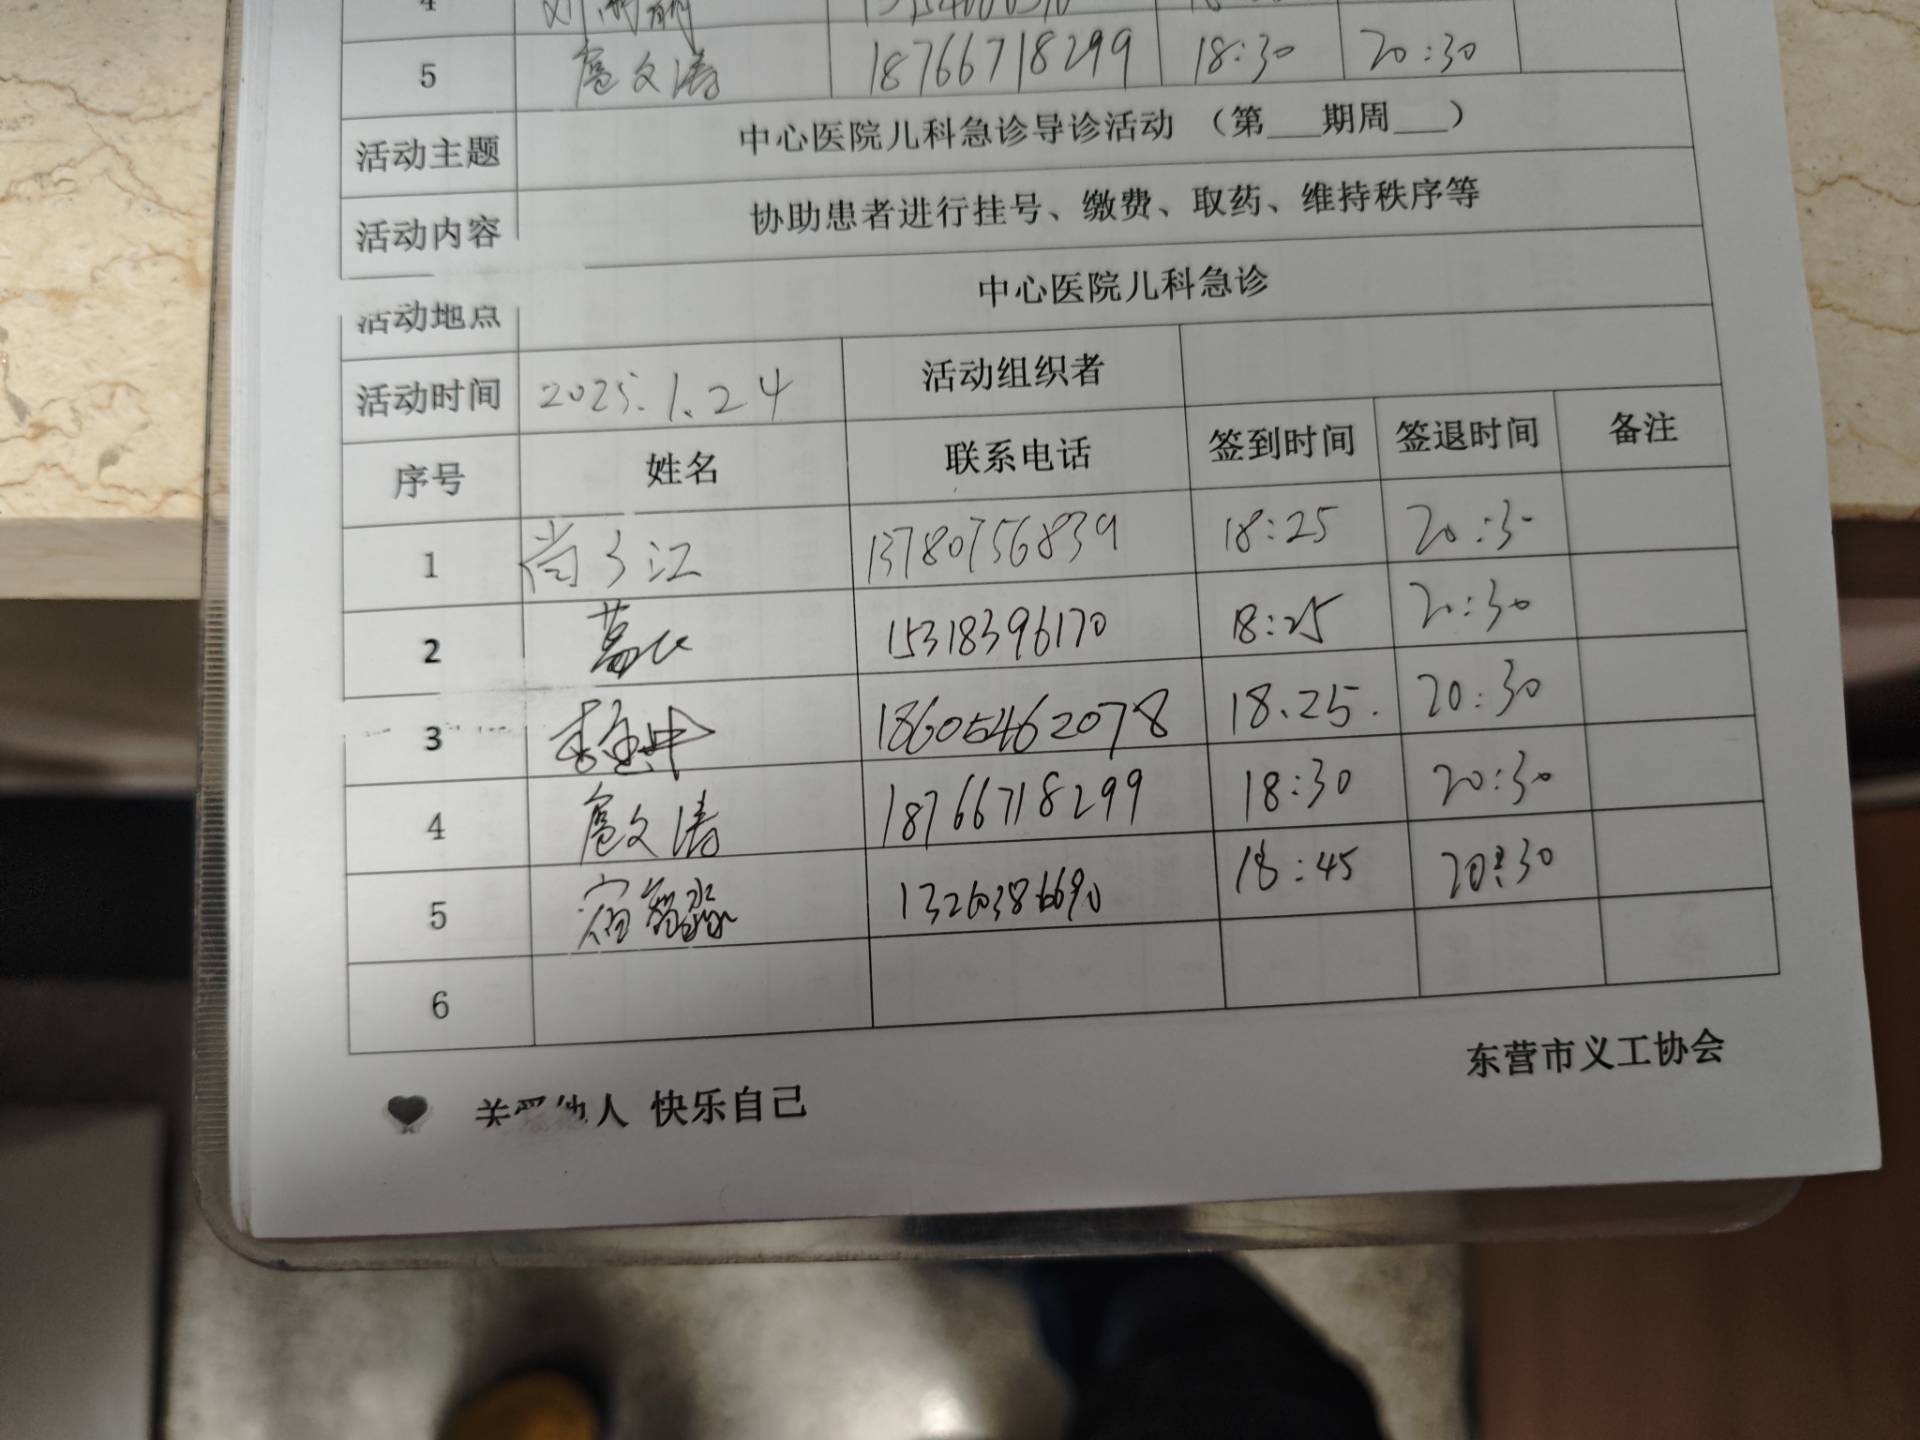 5 扈文涛 18766718299 18:30 20:30
活动主题 中心医院儿科急诊导诊活动 （第___期周___）
活动内容 协助患者进行挂号、缴费、取药、维持秩序等
活动地点 中心医院儿科急诊
活动时间 2025.1.24 活动组织者
序号 姓名 联系电话 签到时间 签退时间 备注
1 13780756839 18:25 20:30
2 15318396170 18:25 20:30
3 18605462078 18.25. 20:30
4 扈文涛 18766718299 18:30 20:30
5 18:45 20:30
6
东营市义工协会
关爱他人 快乐自己